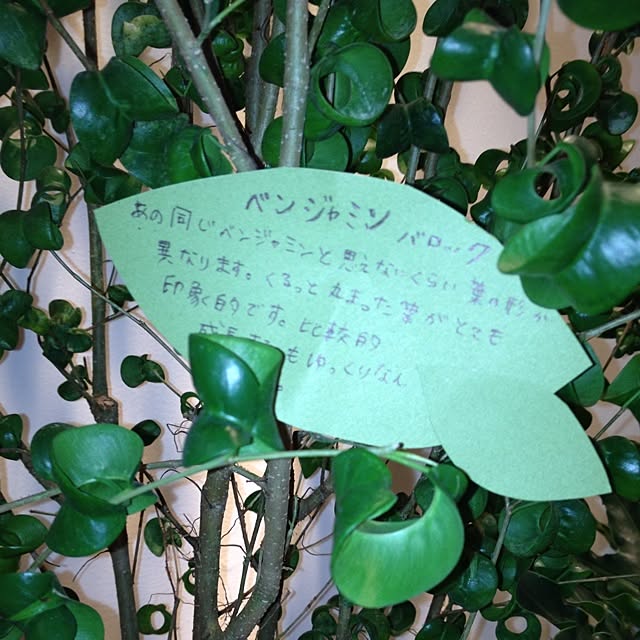 ベンジャミン バロック
あの同じベンジャミンと思えないくらい葉の形が
異なります。くるっと丸まった葉がとても
印象的です。比較的
成長もゆっくりなん